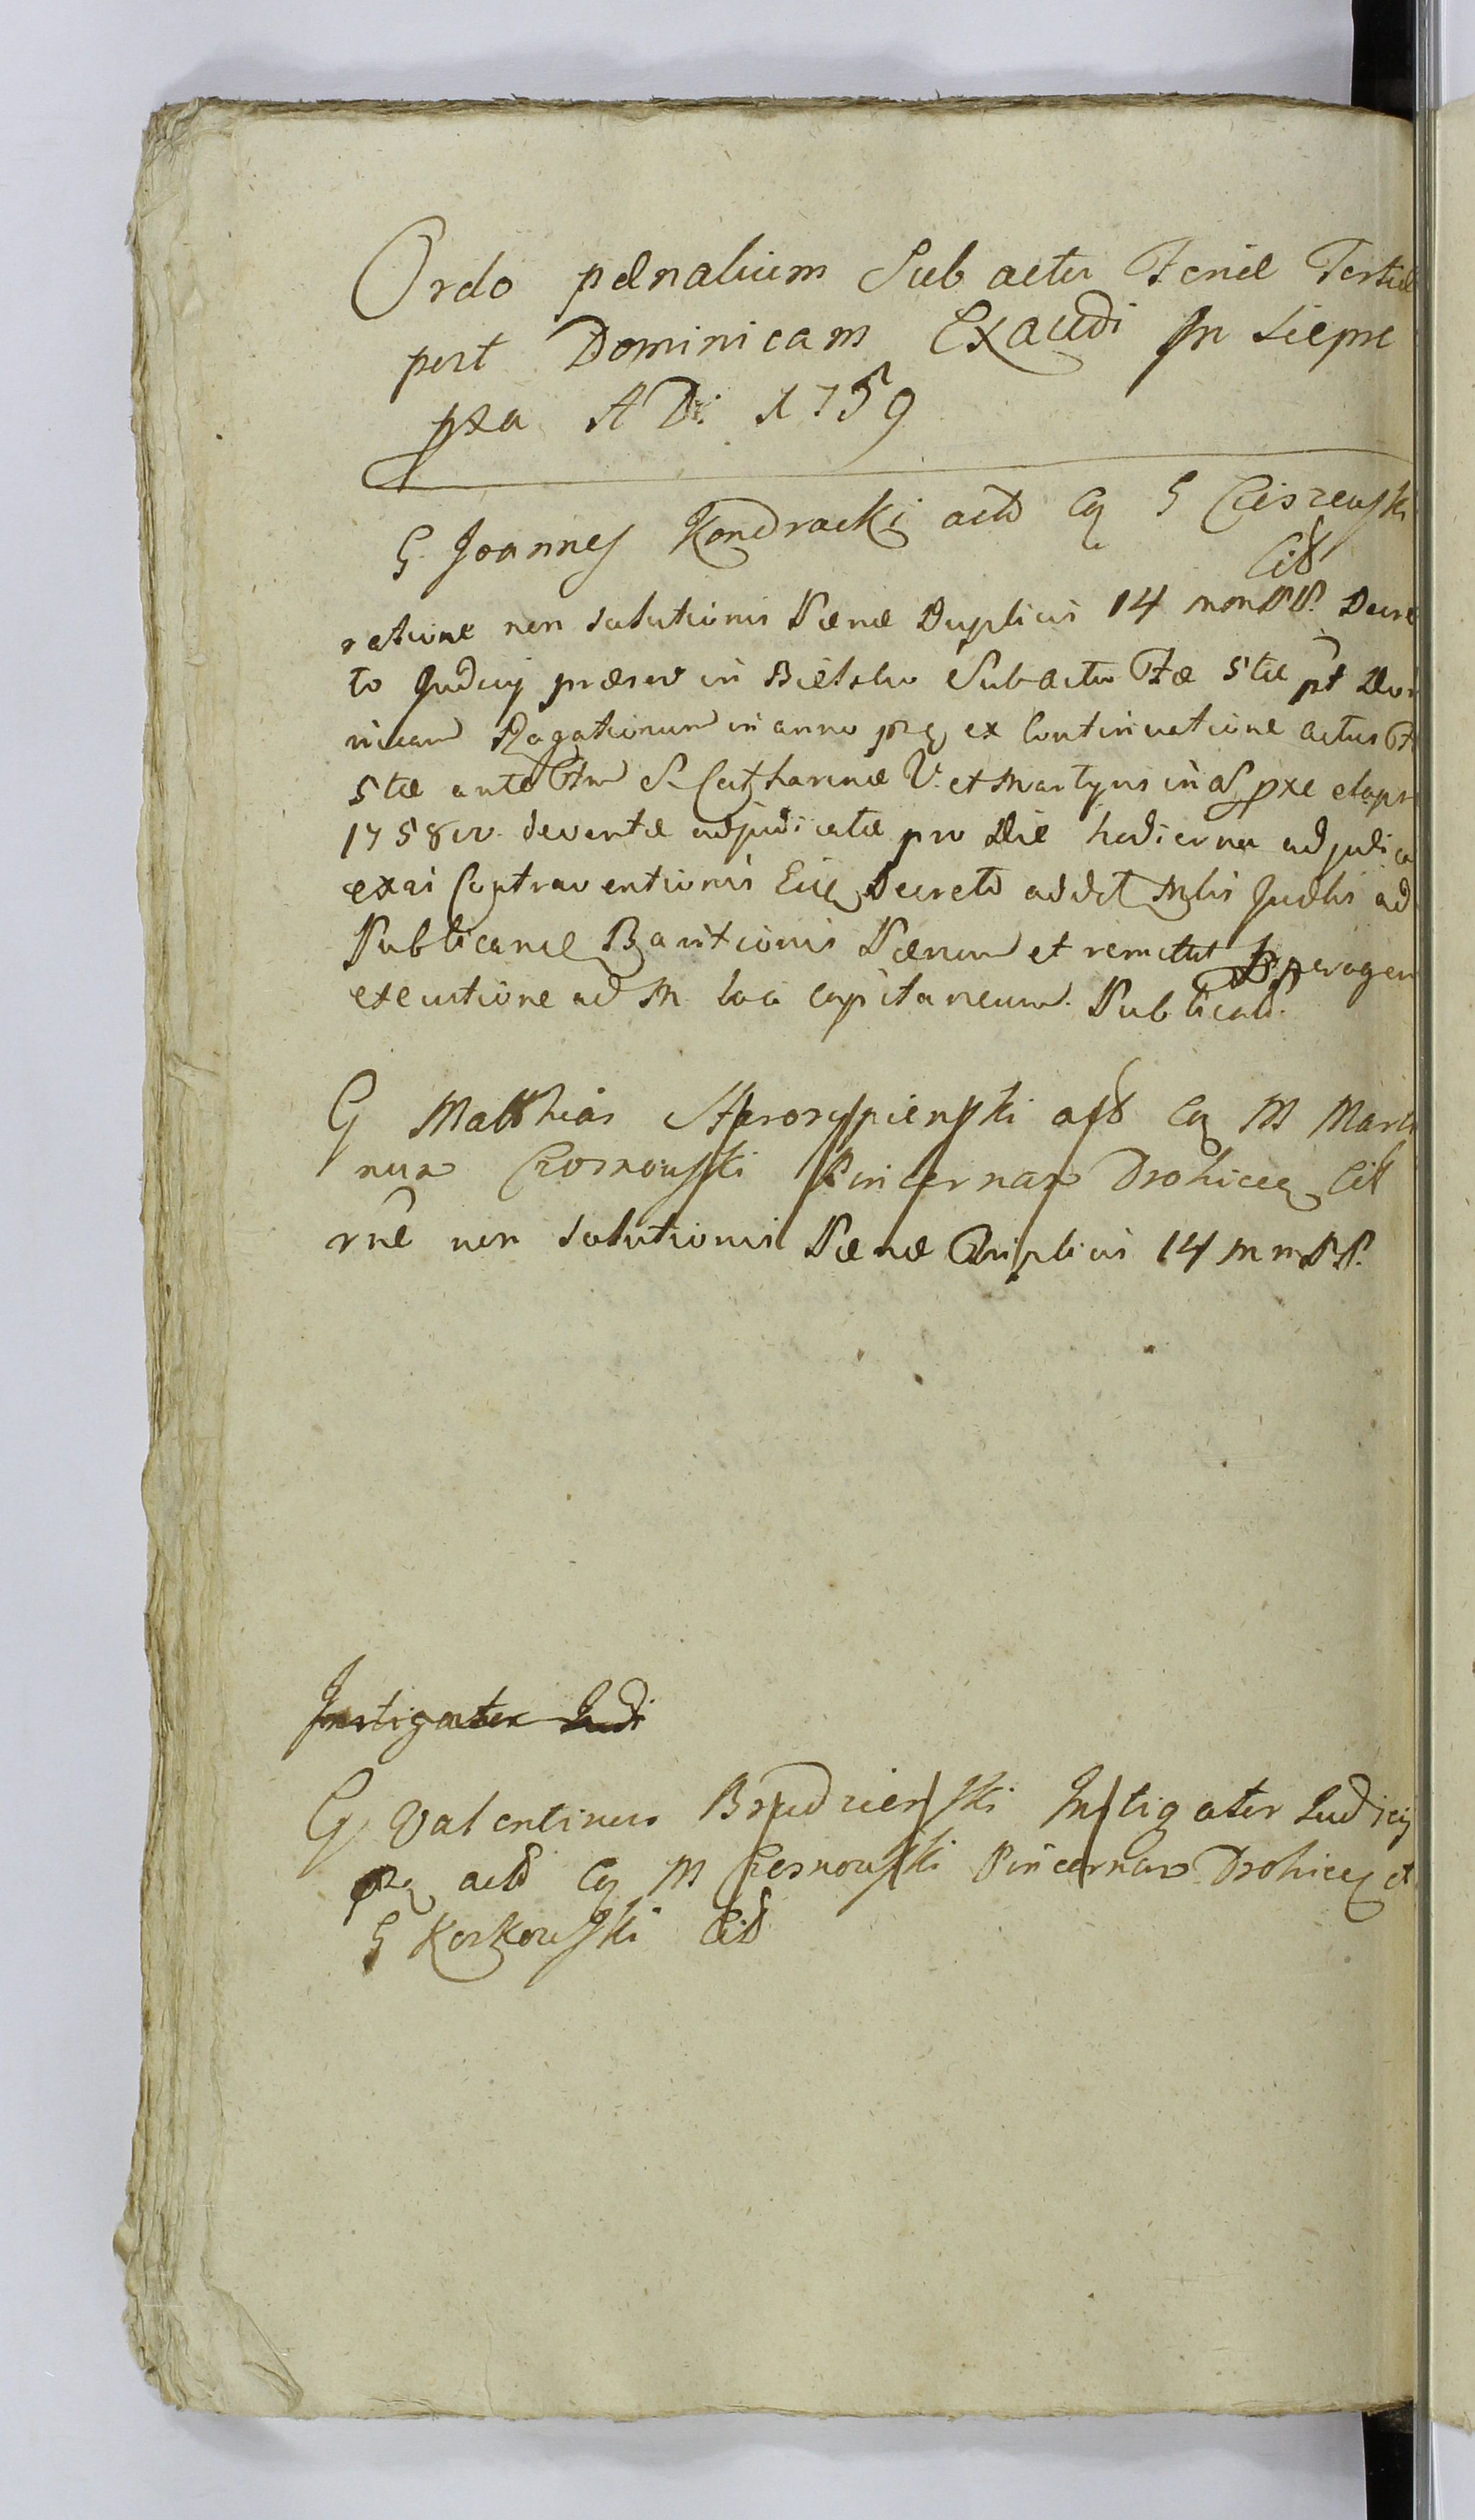 Ordo pœnalium Sub actu Feriæ Tertiæ
post Dominicam Exaudi in
pxa A D: 1759
G Joannes Kondracki actō Cq G Ciszewski
Citt
ratione non solutionis Pænæ Duplicis 14 PP. Decre
to Judicij præsen in Bielsko Sub actu Fæ 5tæ pt Dom
nicam Rogationum in anno præ ex Continuatione actus F
5tæ ante Ftm S. Catharinæ V. et Martyris in a pxe elaps
1758 adjudicatæ pro Die hodierna adjudica
Contraventionis Decreto ad
Publicanæ Banitionis Pænam et remittit peragen
executione ad M loci Capitaneum. Publicatō.
G Matthias actt Cq M Marti
num Czosnowski Pincernam Drohicen Citt
rne non solutionis Pænæ Triplicis 14 PP.
Instigator Judi
G Valentinus Brudzienski Instigator Judicij
pxq actt Cq M Czosnowski Pincernam Drohicen et
G Korkowski Citt